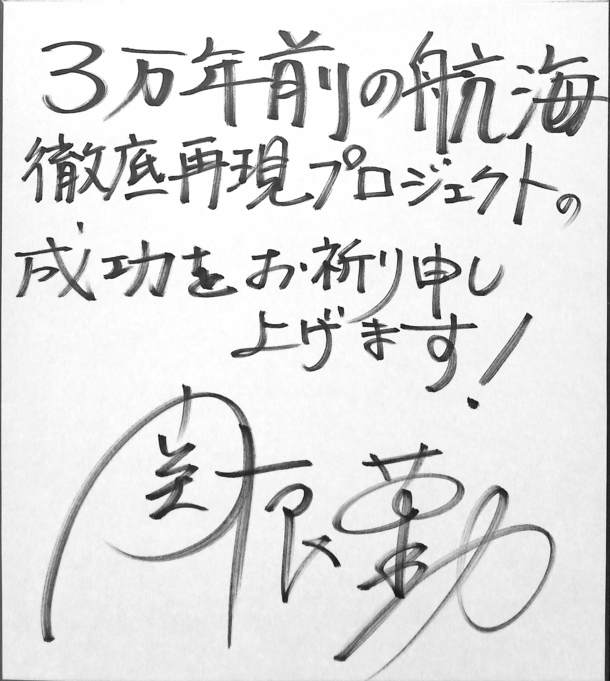 3万年前の航海
徹底再現プロジェクトの
成功をお祈り申し
上げます!
関根勤